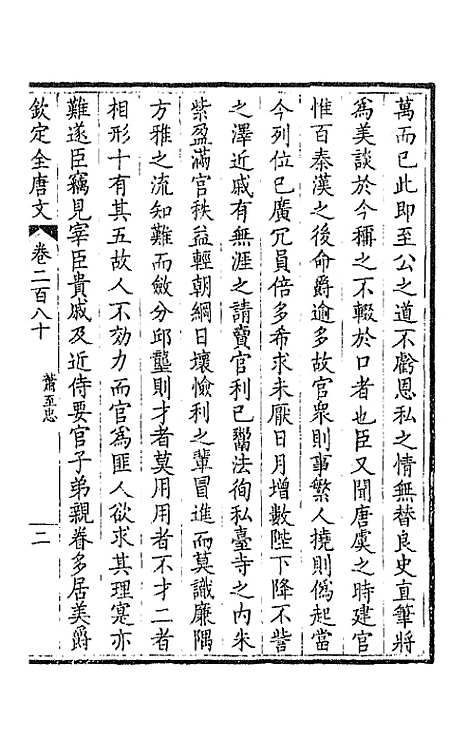 萬而已此即至公之道不虧恩私之情無替良史直筆將
爲美談於今稱之不輟於口者也臣又聞唐虞之時建官
惟百秦漢之後命爵逾多故官衆則事繁人撓則僞起當
今列位已廣冗員倍多希求未厭日月增數陛下降不訾
之澤近戚有無涯之請賣官利已鬻法徇私臺寺之內朱
紫盈滿官秩益輕朝綱日壞憸利之輩冒進而莫識廉隅
方雅之流知難而斂分邱壟則才者莫用用者不才二者
相形十有其五故人不効力而官爲匪人欲求其理寔亦
難遂臣竊見宰臣貴戚及近侍要官子弟親眷多居美爵
欽定全唐文 卷二百八十 蕭至忠 二